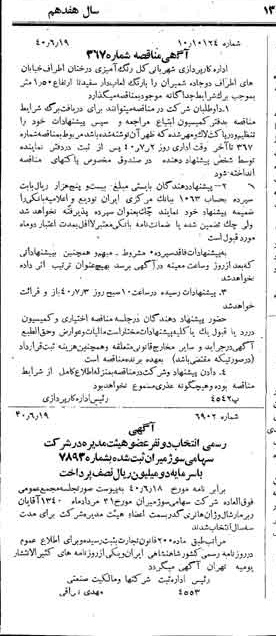 سال هفدهم ۱۳
شماره ۱۰۱۲۴ر۱۰ ۴۰٫۶٫۱۹
آگهی مناقصه شماره ۳۶۷
اداره کارپردازی شهربانی کل رنگ آمیزی درختان اطراف خیابان
های اطراف دوجاده شمیران را با رنگ لعاب دار سفید تا ارتفاع ۱٫۵۰ متر
بموجب برگ شرایط جداگانه موجود بمناقصه میگذارد
۱ـ داوطلبان شرکت در مناقصه میتوانند برای دریافت برگ شرایط
مناقصه بدفتر کمیسیون ابتیاع مراجعه و سپس پیشنهادات خود را
تنظیم و در پاکت لاک و مهر شده که ظهر آن نوشته شده باشد مربوط بمناقصه شماره
۳۶۷ تا آخر وقت اداری روز ۴۰٫۷٫۲ پس از ثبت در دفتر نماینده
توسط شخص پیشنهاد دهنده در صندوق مخصوص پاکتهای مناقصه
انداخته شود
۲ـ پیشنهاد دهندگان بایستی مبلغ بیست و پنج هزار ریال بابت
سپرده بحساب ۱۰۶۳ ببانک مرکزی ایران تودیع و اعلامیه بانکی را
ضمیمه پیشنهاد خود نمایند چک بعنوان سپرده پذیرفته نخواهد شد
ولی چک تضمین شده یا ضمانت نامه بانکی معتبر لااقل بمدت اعتبار دو ماه
مورد قبول است
به پیشنهادات فاقد سپرده ـ مشروط ـ مبهم و همچنین پیشنهاداتی
که بعد از روز و ساعت معینه در آگهی برسد بهیچ عنوان ترتیب اثر داده
نخواهد شد
۳ـ پیشنهادات رسیده در ساعت ۱۰ صبح روز ۴۰٫۷٫۳ باز و قرائت
خواهد شد
حضور پیشنهاد دهندگان در جلسه مناقصه اختیاری و کمیسیون
در رد یا قبول یک یا کلیه پیشنهادات مختار است مالیات و عوارض و حق الطبع
آگهی در جراید و سایر مخارج قانونی متعلقه و همچنین هزینه ثبت قرارداد
(در صورتیکه مقتضی باشد) بعهده برنده مناقصه است
۴ـ دادن پیشنهاد و شرکت در مناقصه بمنزله اطلاع کامل از شرایط
مناقصه بوده و هیچگونه عذری مسموع نخواهد بود
پ ۴۵۴۲ رئیس اداره کارپردازی
شماره ۶۹۰۲ ۴۰٫۶٫۱۹
آگهی
رسمی انتخاب دو نفر عضو هیئت مدیره در شرکت
سهامی سوژ میران ثبت شده بشماره ۷۸۹۳
با سرمایه دو میلیون ریال نصف پرداخت
برابر نامه مورخ ۴۰٫۶٫۱۸ به پیوست صورتجلسه مجمع عمومی
فوق العاده شرکت سهامی سوژ میران مورخ ۳۱ مرداد ماه ۱۳۴۰ آقایان
سه سال انتخاب شدند
مراتب طبق ماده ۲۰۰ قانون تجارت بثبت رسیده و برای اطلاع عموم
در روزنامه رسمی کشور شاهنشاهی ایران و یکی از روزنامه های کثیرالانتشار
یومیه تهران آگهی میگردد
رئیس اداره ثبت شرکتها و مالکیت صنعتی
۴۵۵۳ مهدی نراقی